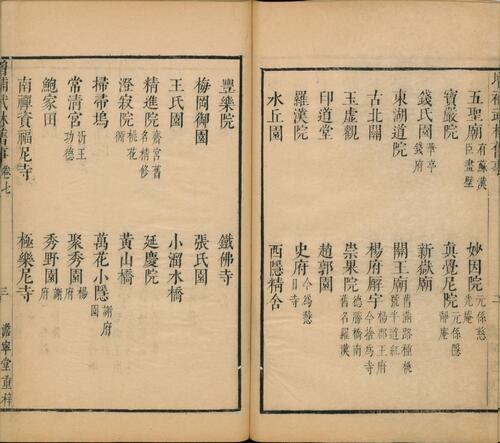 五聖廟有蘇漢臣畫壁 妙因院元係慈光庵
寶嚴院 真覺尼院元係隱靜庵
錢氏園華亭錢府 新嶽廟
東湖道院 關王廟舊滿路種桃號半道紅
古北關 楊府廨宇楊郡王府今捨為寺
玉虛觀 崇果院德勝橋南舊名羅漢
印道堂 趙郭園
羅漢院 史府今為慧日寺
水丘園 西隱精舍
豐樂院 鐵佛寺
梅岡御園 張氏園
王氏園 小溜水橋
精進院齋宮舊名精修 延慶院
澄寂院桃花衕 黃山橋
掃帚塢 萬花小隱謝府園
常清宮沂王功德 聚秀園楊府
鮑家田 秀野園謝府
南禪資福尼寺 極樂尼寺
增補武林舊事 卷七 三 澹寧堂重梓